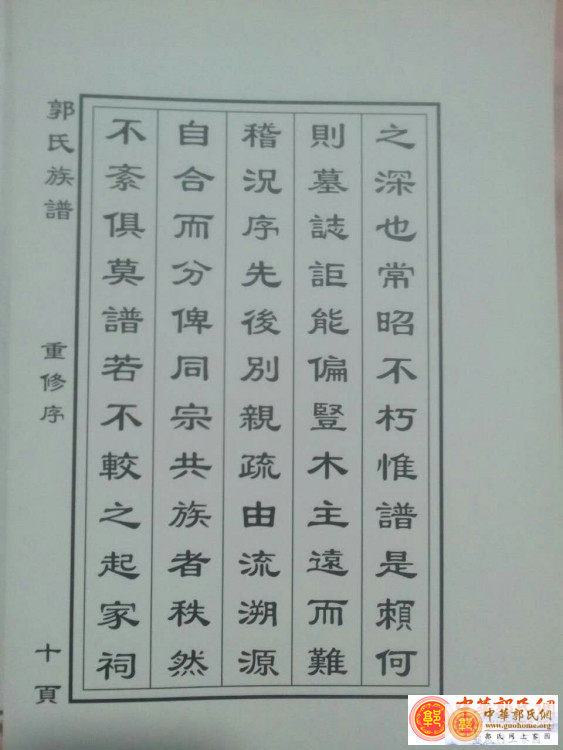 之深也常昭不朽惟譜是賴何
則墓誌詎能偏豎木主遠而難
稽況序先後別親疏由流溯源
自合而分俾同宗共族者秩然
不紊俱莫譜若不較之起家祠
郭氏族譜
重修序
十頁
中華郭氏網
中華郭氏網
www.guohome.org
郭氏网上家园